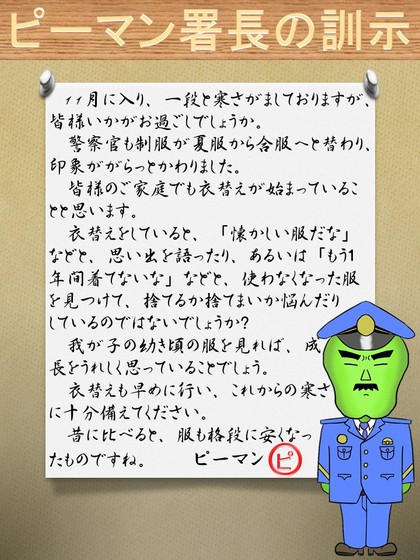 ピーマン署長の訓示
11月に入り、一段と寒さがましておりますが、
皆様いかがお過ごしでしょうか。
警察官も制服が夏服から合服へと替わり、
印象ががらっとかわりました。
皆様のご家庭でも衣替えが始まっているこ
とと思います。
衣替えをしていると、「懐かしい服だな」
などと、思い出を語ったり、あるいは「もう1
年間着てないな」などと、使わなくなった服
を見つけて、捨てるか捨てまいか悩んだり
しているのではないでしょうか?
我が子の幼き頃の服を見れば、成
長をうれしく思っていることでしょう。
衣替えも早めに行い、これからの寒さ
に十分備えてください。
昔に比べると、服も格段に安くなっ
たものですね。 ピーマン ピ